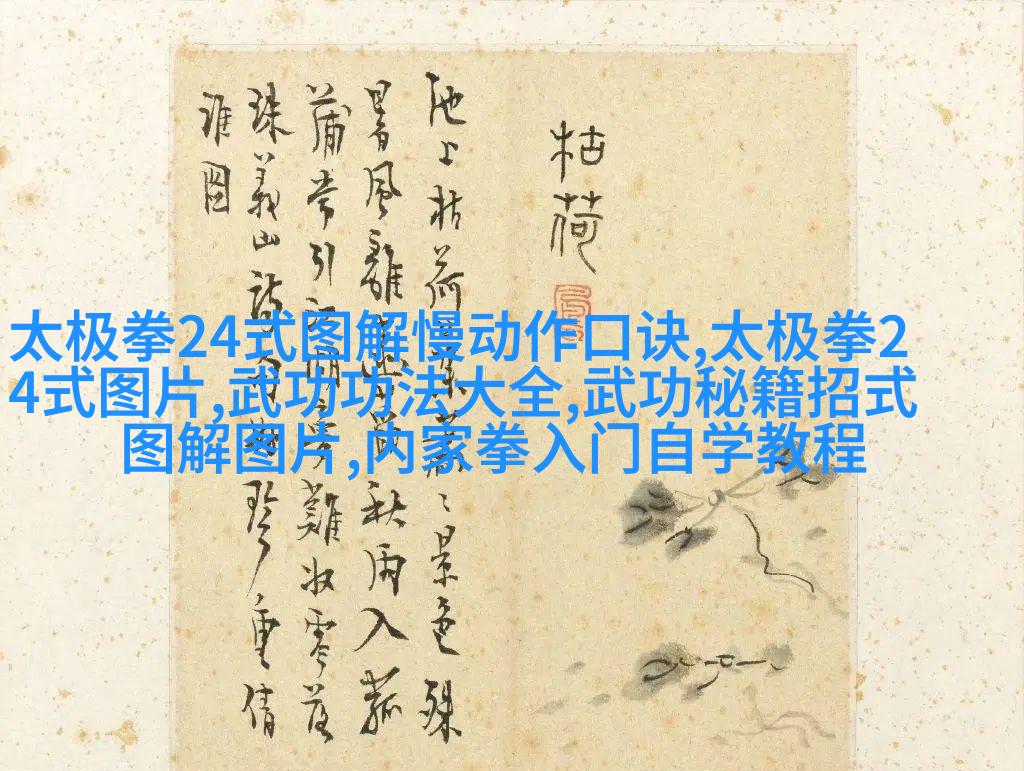 枯荷
池上枯荷葉蕭〻景色殊
暑風離秋雨入菰
蒲常引難收零落
珠義山詩句珍重倩
誰圖
太极拳24式图解慢动作口诀,太极拳2
4式图片,武功功法大全,武功秘籍招式
图解图片,内家拳入门自学教程